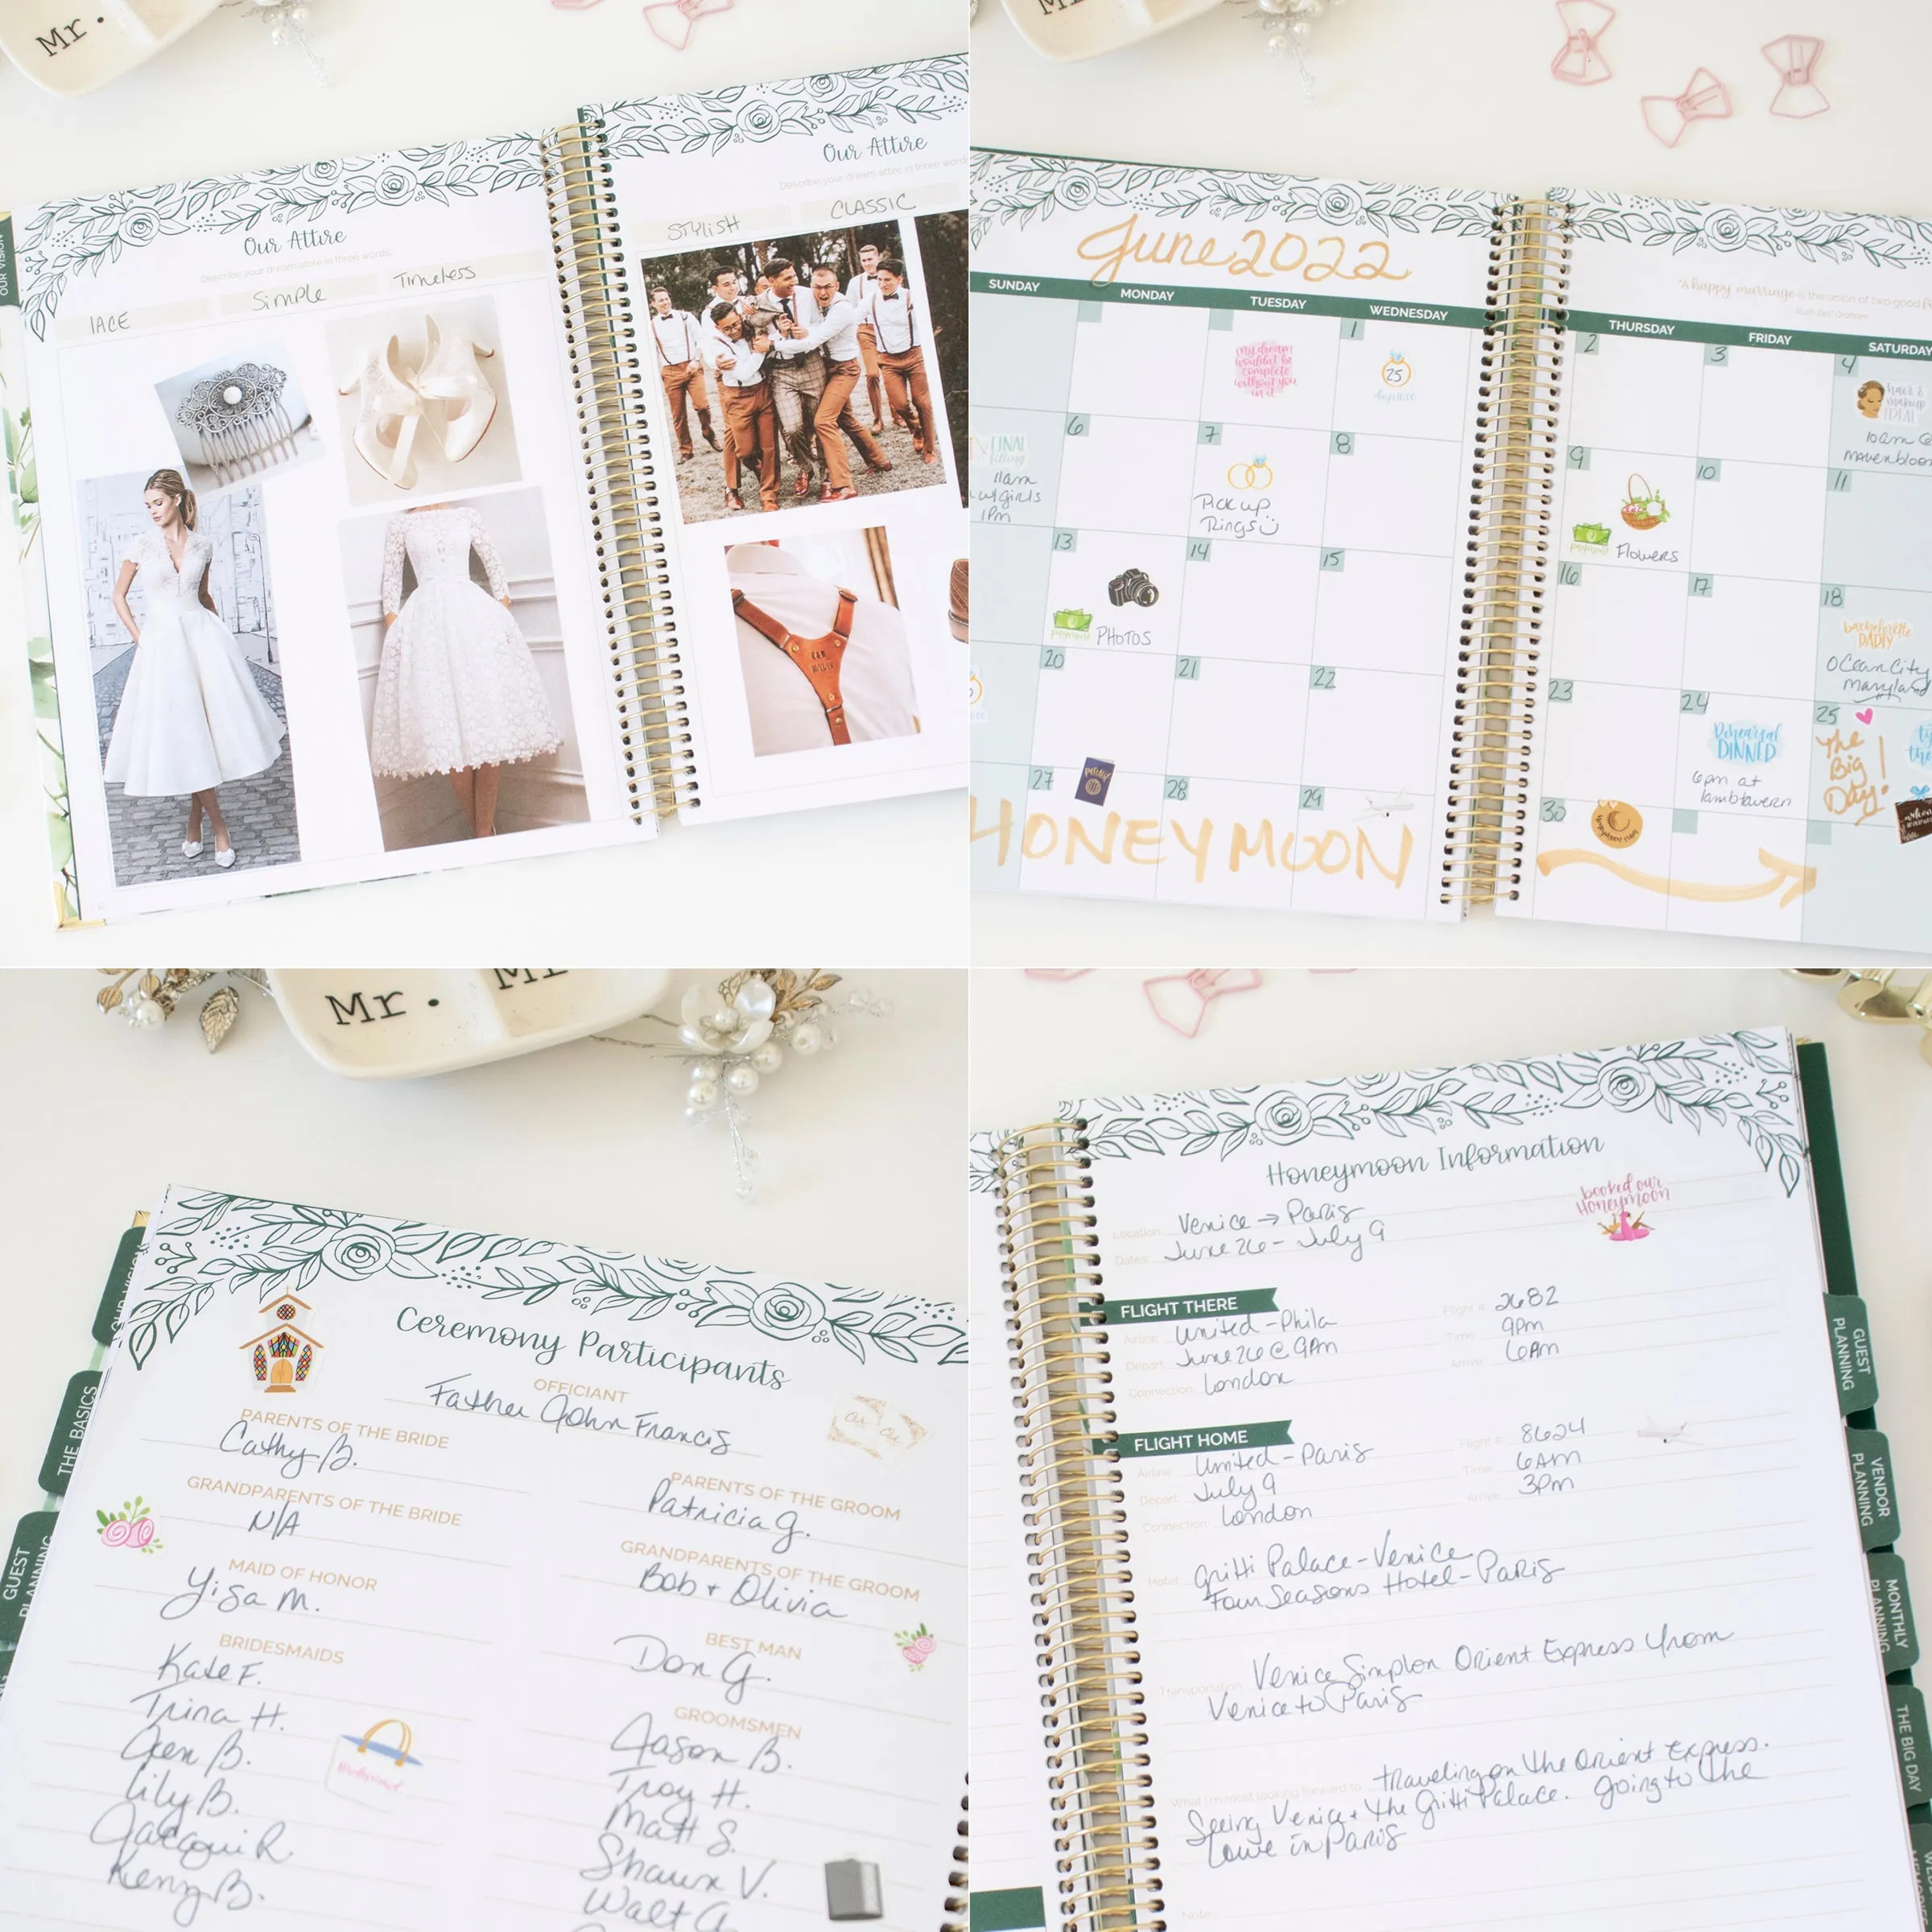 Mr.
OUR VISION
Our Attire
Describe your dream attire in three words.
lACE
Simple
Timeless
Our Attire
Describe your dream attire in three words
STYlisH
CLASSIC
June 2022
"A happy marriage is the union of two good
SUNDAY
MONDAY
TUESDAY
WEDNESDAY
THURSDAY
FRIDAY
SATURDAY
1
2
3
4
my dream
wouldn't be
complete
without you
in it
25
days to go
hair &
makeup
10am @
6
7
8
9
10
11
FINAL
fitting
11am
w/girls
1pm
Pick up
Rings
payment
Flowers
13
14
15
16
17
18
payment
PHOTOS
bachelorette
PARTY
Ocean City
Maryland
20
21
22
23
24
25
Rehearsal
DINNER
6pm at
The
Big
Day!
27
28
29
30
HONEYMOON
Mr.
OUR VISION
THE BASICS
GUEST
PLANNING
Ceremony Participants
OFFICIANT
Father John Francis
PARENTS OF THE BRIDE
Cathy B.
PARENTS OF THE GROOM
Patricia G.
GRANDPARENTS OF THE BRIDE
N/A
GRANDPARENTS OF THE GROOM
Bob + Olivia
MAID OF HONOR
BEST MAN
Don G.
BRIDESMAIDS
Kate F.
Trina H.
Jen B.
Lily B.
Jacqui R.
GROOMSMEN
Jason B.
Troy H.
Matt S.
Shawn V.
Walt
Honeymoon Information
booked our
Honeymoon
Location: Venice → Paris
Dates: June 26 - July 9
FLIGHT THERE
Airline: United - Phila
Flight #: 2682
Depart: June 26 @ 9pm
Time: 9pm
Connection: London
Arrive: 6Am
FLIGHT HOME
Airline: United - Paris
Flight #: 8624
Depart: July 9
Time: 6Am
Connection: London
Arrive: 3pm
Hotel: Gritti Palace - Venice
Four Seasons Hotel - Paris
Transportation: Venice Simplon Orient Express from
Venice to Paris
What I'm most looking forward to: traveling on the Orient Express.
Seeing Venice + the Gritti Palace. Going to the
Louve in Paris
Notes:
GUEST
PLANNING
VENDOR
PLANNING
MONTHLY
PLANNING
THE BIG DAY